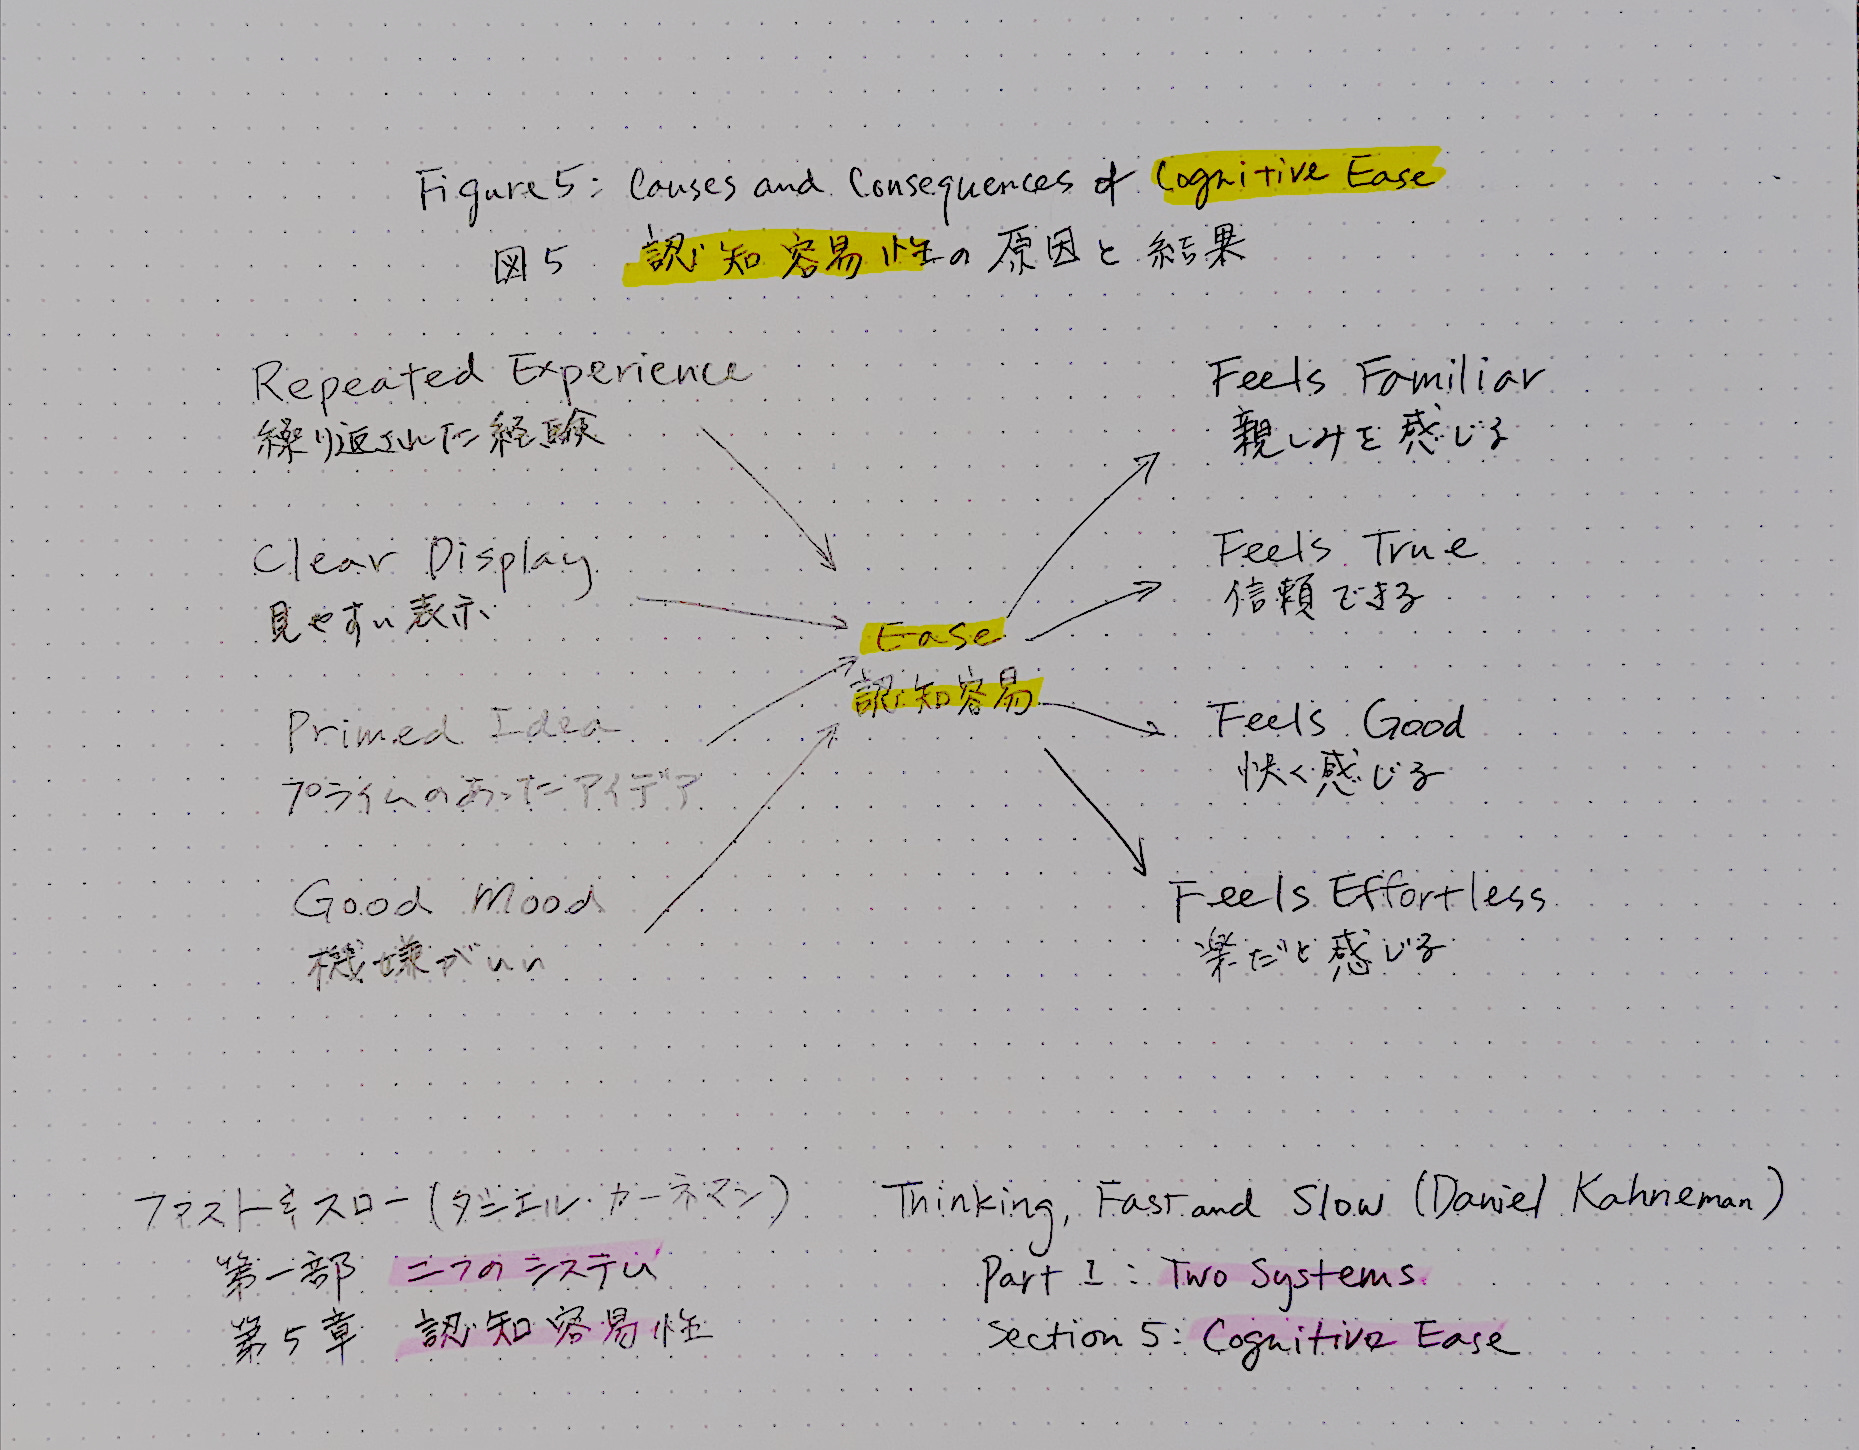 Figure 5: Causes and Consequences of Cognitive Ease
図5 認知容易性の原因と結果
Repeated Experience
繰り返された経験
Clear Display
見やすい表示
Primed Idea
プライムのあったアイデア
Good Mood
機嫌がいい
Ease
認知容易
Feels Familiar
親しみを感じる
Feels True
信頼できる
Feels Good
快く感じる
Feels Effortless
楽だと感じる
ファスト&スロー(ダニエル・カーネマン)
第一部 二つのシステム
第5章 認知容易性
Thinking, Fast and Slow (Daniel Kahneman)
Part 1: Two Systems
Section 5: Cognitive Ease